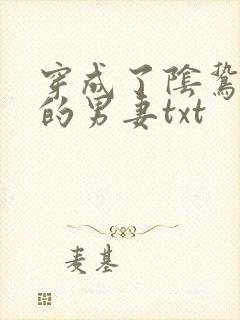 穿成了陰鷙
的男妻txt
麦基